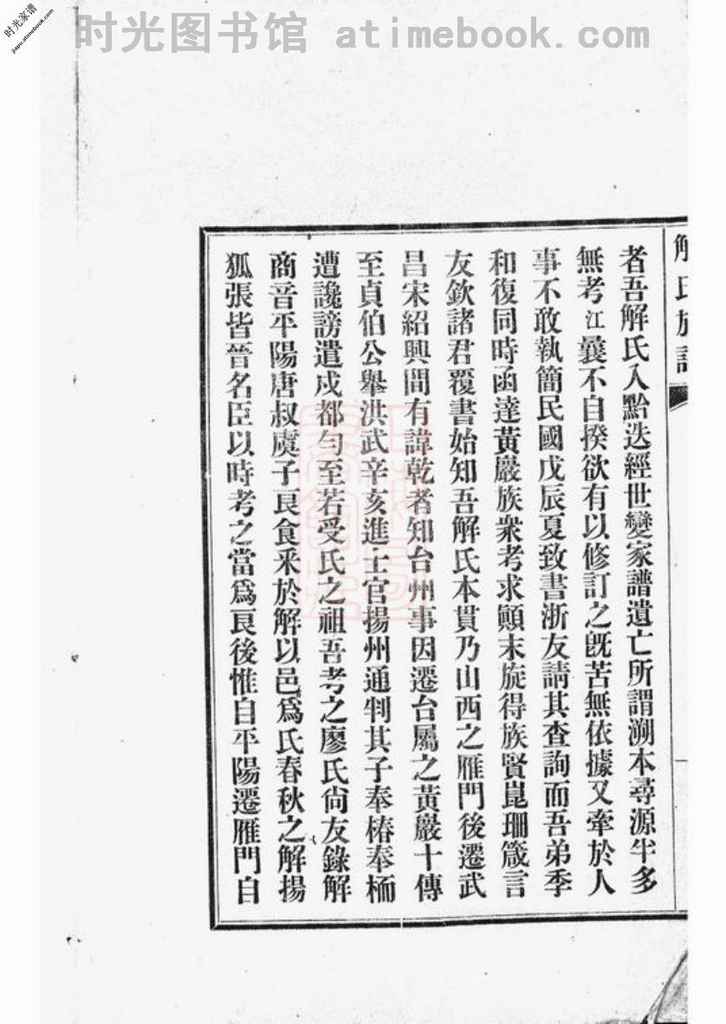 时光图书馆 atimebook.com
时光家谱
jiapu.atimebook.com
解氏族譜
者吾解氏入黔迭經世變家譜遺亡所謂溯本尋源半多
無考江曩不自揆欲有以修訂之旣苦無依據又牽於人
事不敢執簡民國戊辰夏致書浙友請其查詢而吾弟季
和復同時函達黃巖族衆考求顚末旋得族賢崑珊箴言
友欽諸君覆書始知吾解氏本貫乃山西之雁門後遷武
昌宋紹興間有諱乾者知台州事因遷台屬之黃巖十傳
至貞伯公舉洪武辛亥進士官揚州通判其子奉椿奉桷
遭讒謗遣戍都勻至若受氏之祖吾考之廖氏尙友錄解
商音平陽唐叔虞子良食釆於解以邑爲氏春秋之解揚
狐張皆晉名臣以時考之當爲良後惟自平陽遷雁門自